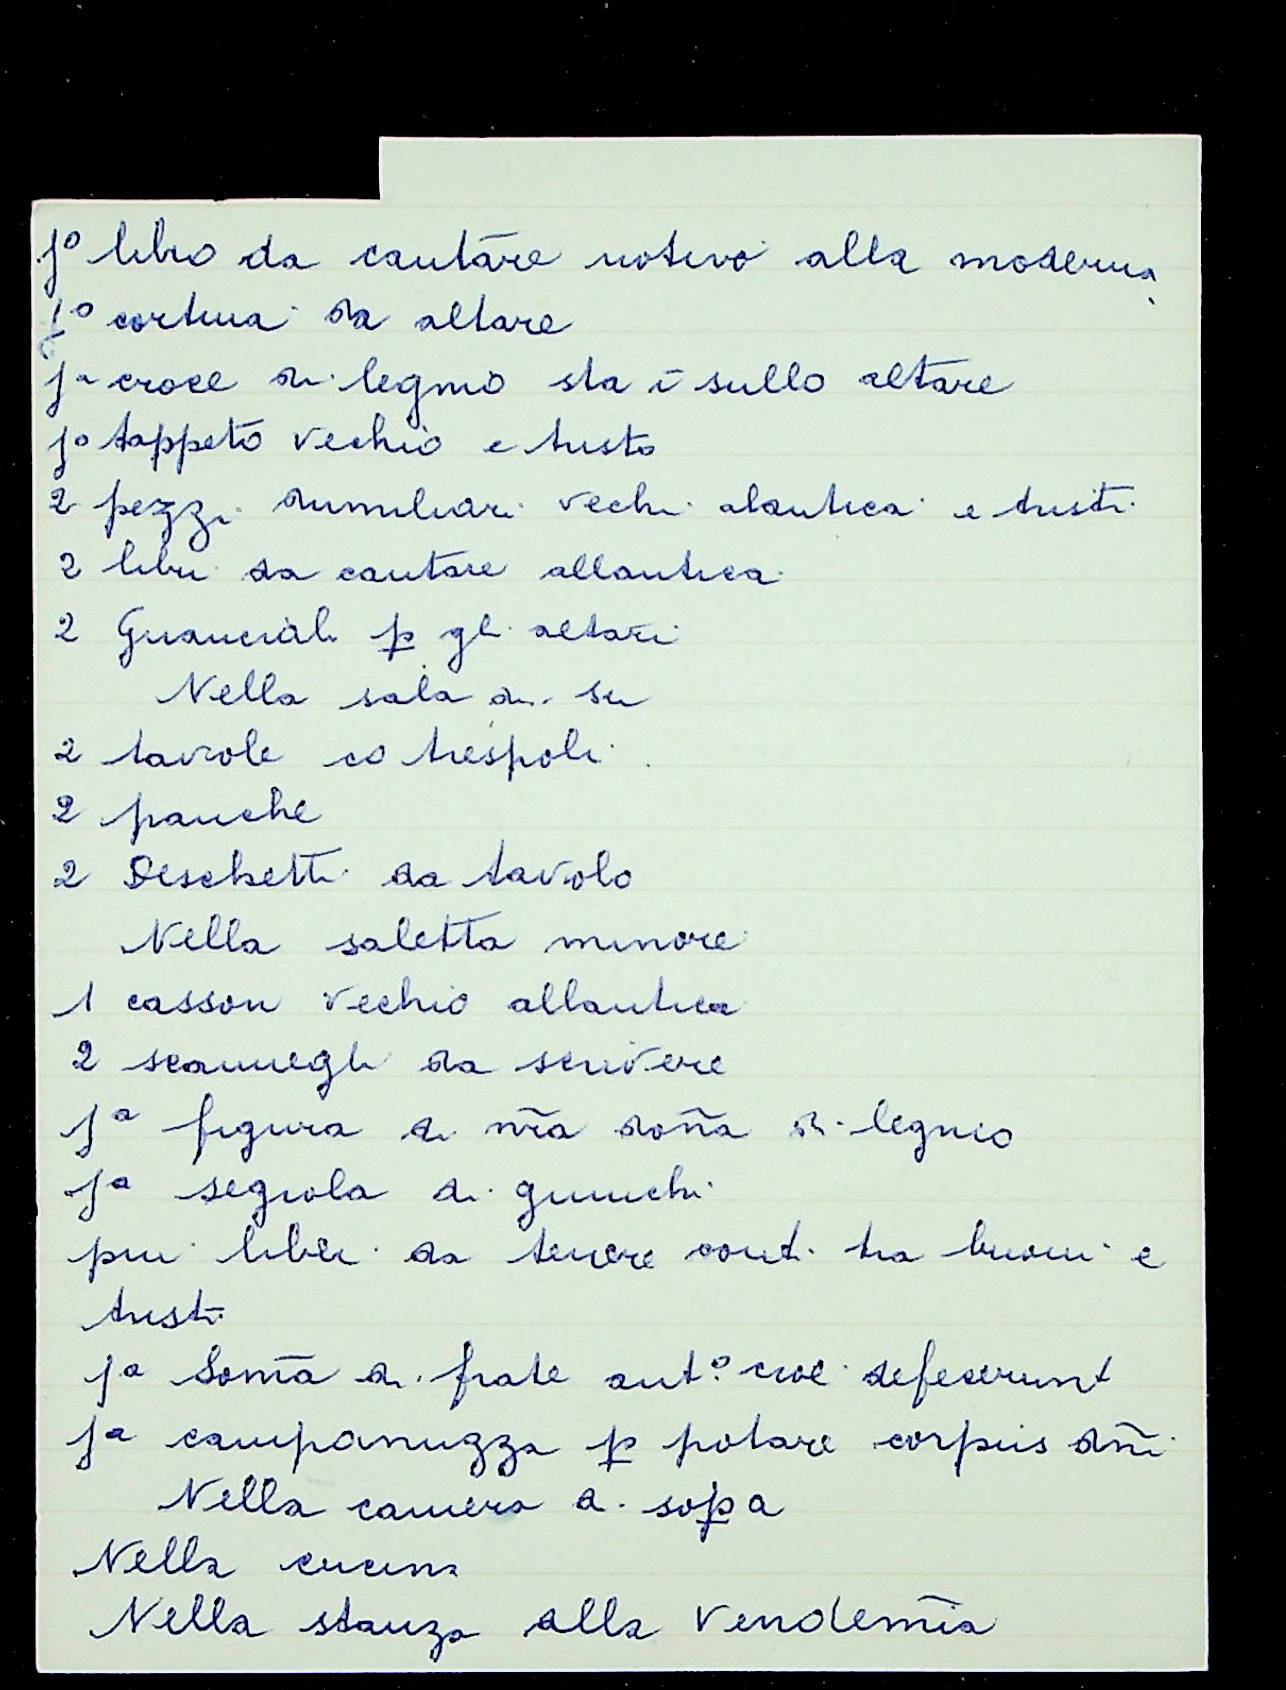 jº libro da cantare notivo alla moderna
1º cortina da altare
jª croce di legnio sta ī sullo altare
jº tappeto vechio e tristo
2 pezzi vechi alantica e tristi
2 libri da cantare allantica
2 Guanciali p̱ gli altari
Nella sala di su
2 tavole cō trespoli
2 panche
2 Deschetti da tavolo
Nella saletta minore
1 casson vechio allantica
2 scannegli da scrivere
jª figura di nr̄a don̄a di legnio
jª segiola di giunchi
piu libri da tenere conti tra buoni e
tristi
jª Som̄a di frate antº cioe defecerunt
jª campanuzza p̱ potare corpus dn̄i
Nella camera di sop̱a
Nella cucina
Nella stanza alla Vendem̄ia